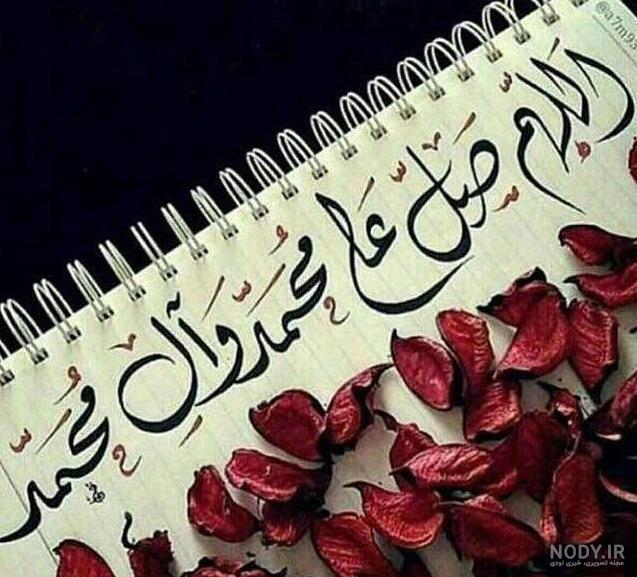 اللهم صل على محمد وآل محمد
NODY.IR
مجله تصویری، خبری نودی